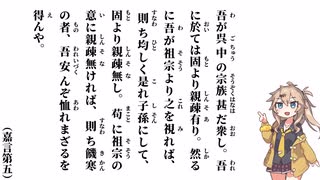 吾が呉中の宗族甚だ衆し。吾
に於ては固より親疎有り。然る
に吾が祖宗より之を視れば、
則ち均しく是れ子孫にして、
固より親疎無し。苟に祖宗の
意に親疎無ければ、則ち饑寒
の者、吾安んぞ恤れまざるを
得んや。
(嘉言第五)